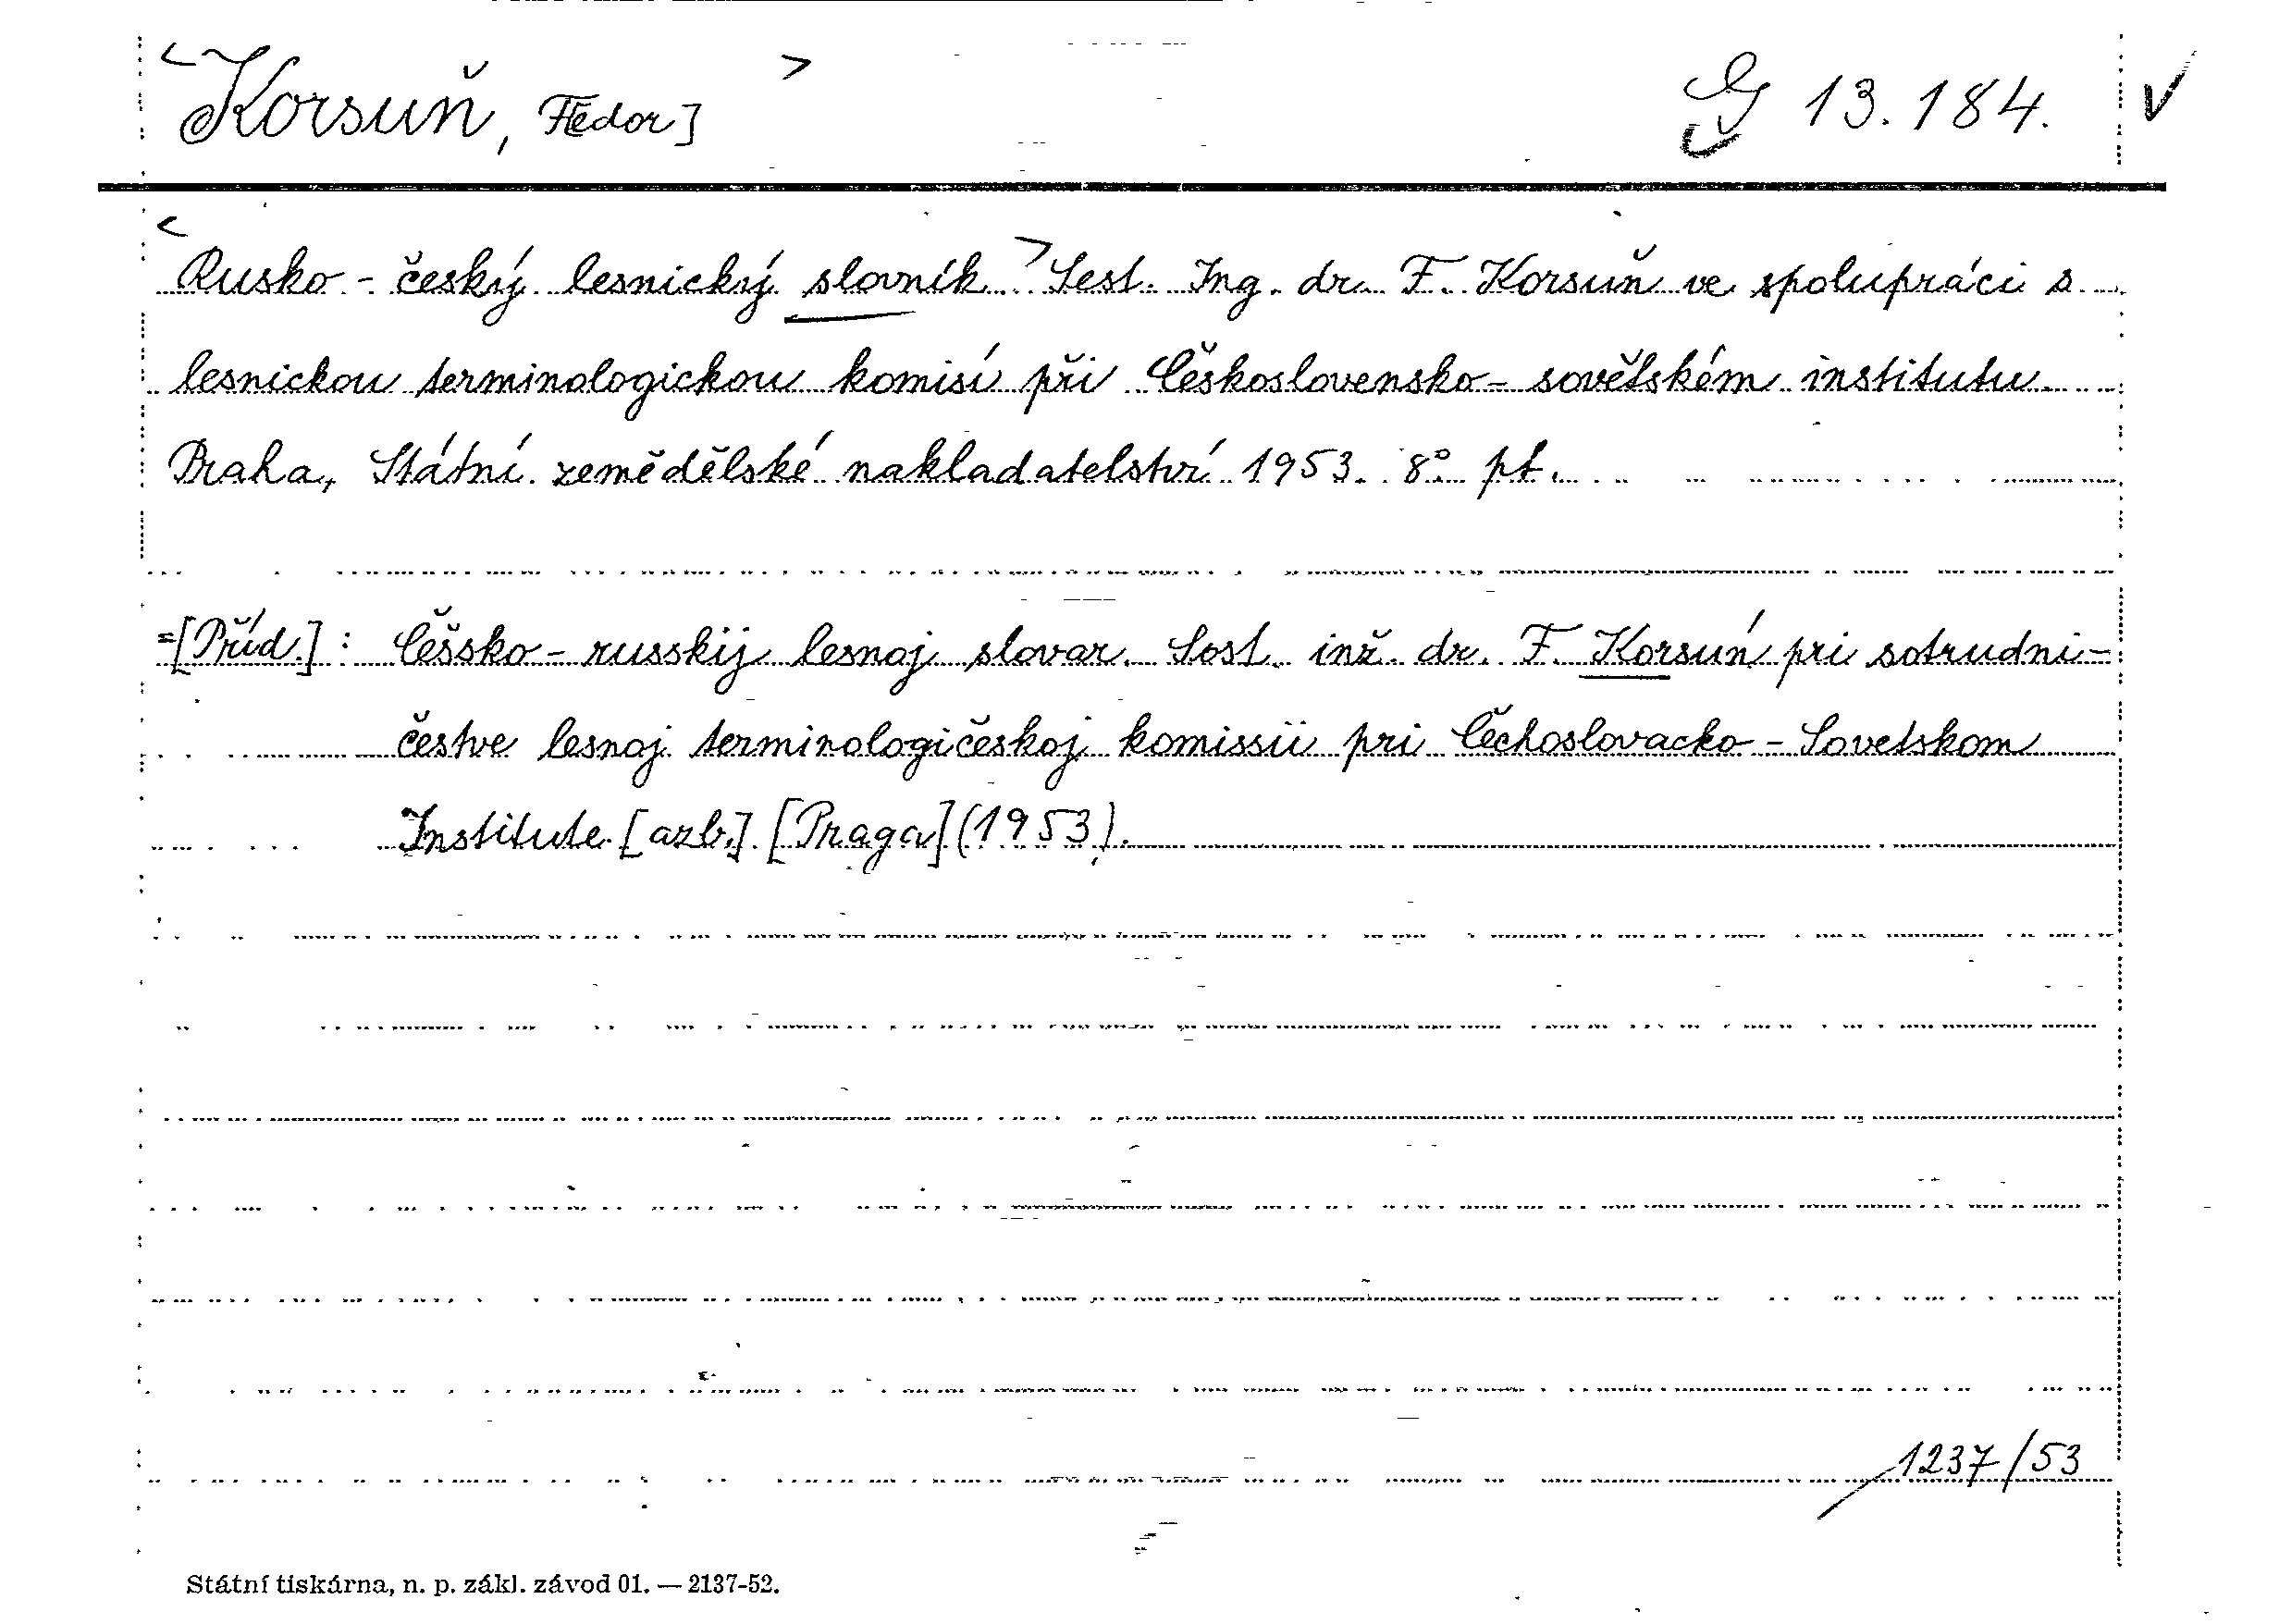 <Korsuň, F[edor]> G 13.184. V
<Rusko-český lesnický slovník> Sest. Ing. dr. F. Korsuň ve spolupráci s
lesnickou terminologickou komisí při Československo-sovětském institutu.
Praha, Státní zemědělské nakladatelství 1953. 8° pt.
=[Příd.]: Češsko-russkij lesnoj slovar. Sost. inž. dr. F. Korsuń pri sotrudni-
čestve lesnoj terminologičeskoj komissii pri Čechoslovacko-Sovetskom
Institute [azb.]. [Praga] (1953).
1237/53
Státní tiskárna, n. p. zákl. závod 01. — 2137-52.